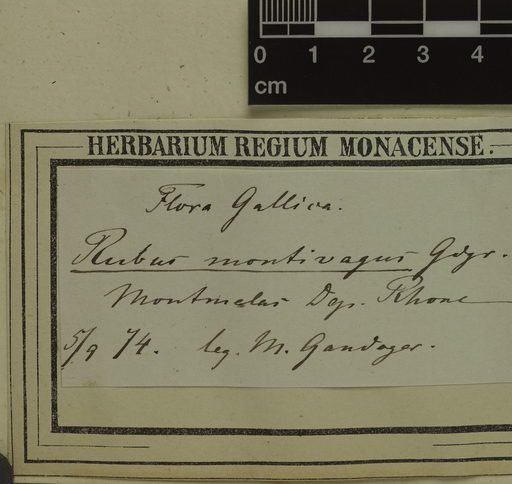 0 1 2 3 4
cm
HERBARIUM REGIUM MONACENSE.
Flora Gallica.
Rubus montivagus Gdgr.
Montmelas Dep. Rhone
5/9 74. leg. M. Gandoger.